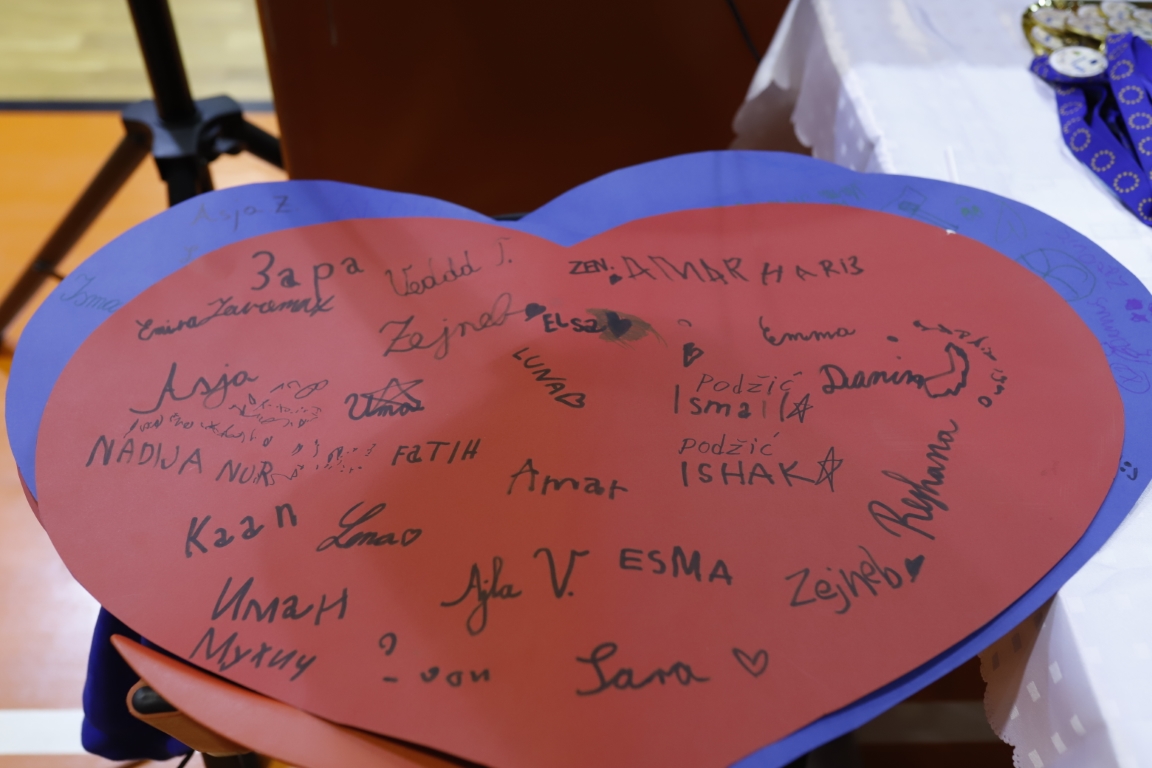 Asja Z
Isma
Зара
Vedad T.
ZEN.
AMAR HARIS
Emira
Zejneb
ELSa
Emma
LUNA
Asja
Uma
Podžić
Ismail
Danin
NADIJA NUR
FATIH
Podžić
ISHAK
Amar
Rejhana
Kaan
Lena
Ajla V.
ESMA
Zejneb
Иман
Мухиу
Sara